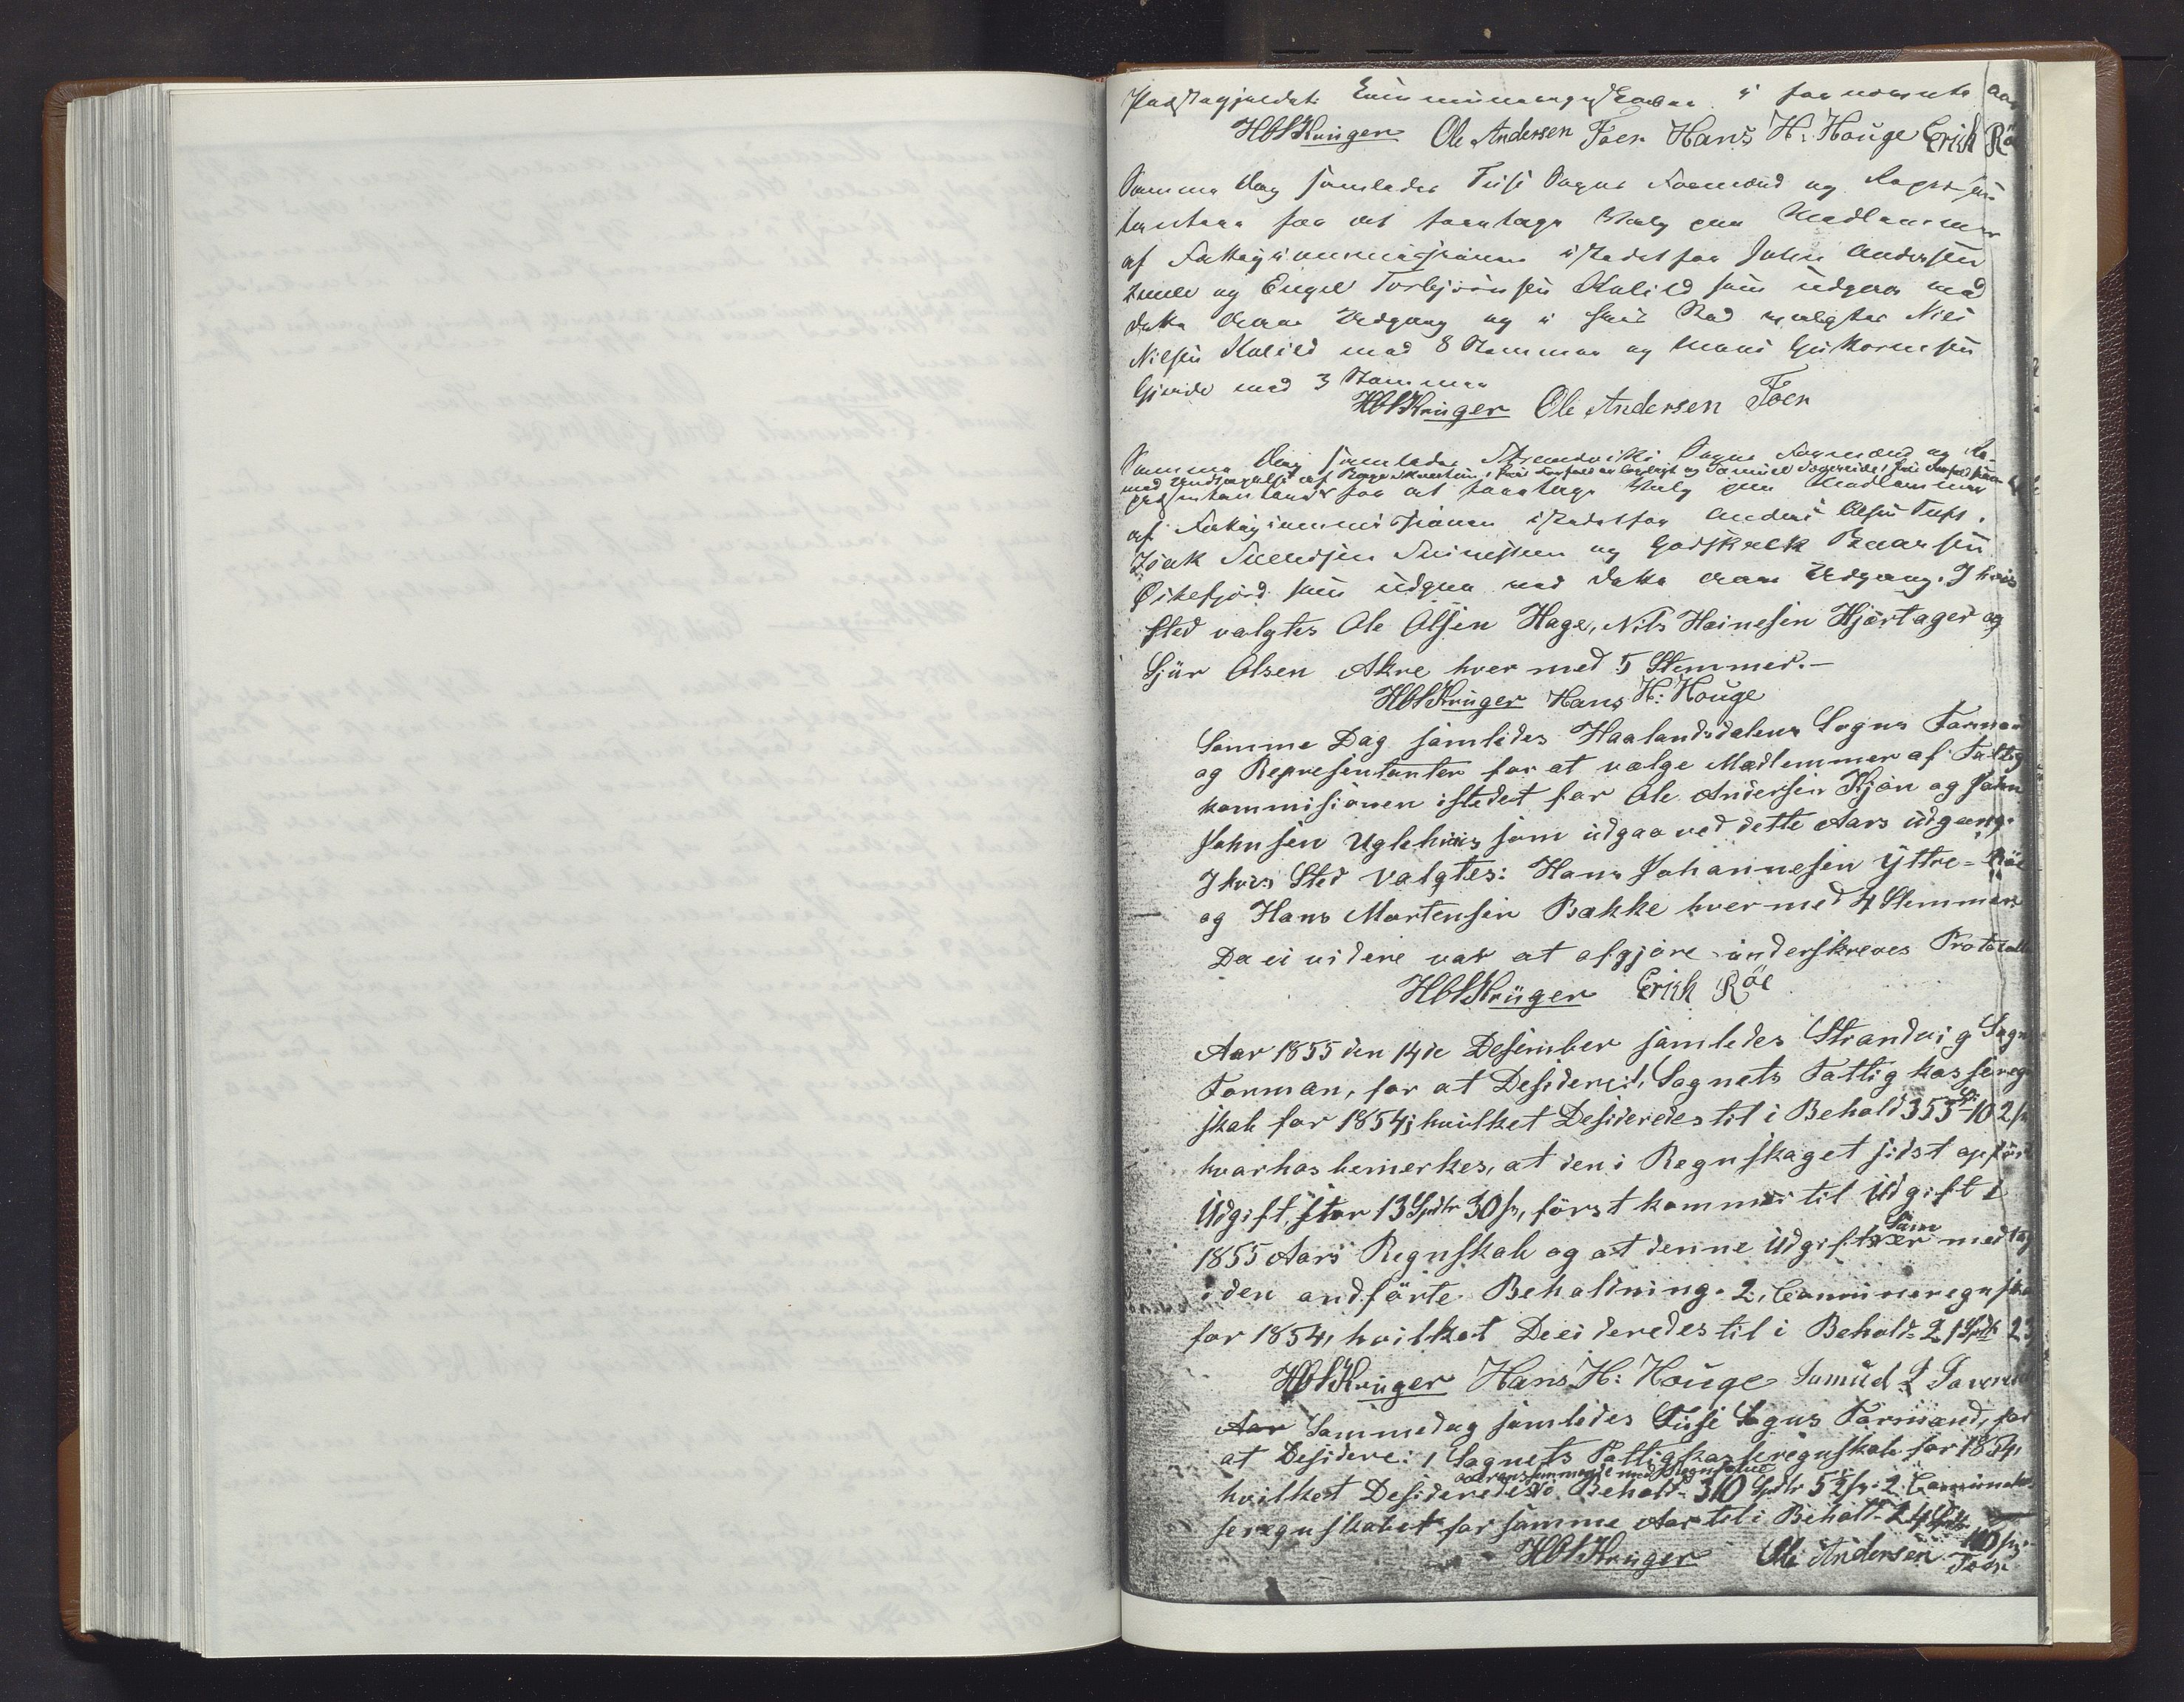 HBSKrüger Ole Andersen Töen Hans H: Houge Erich Röe
Samme Dag samledes Fuse Sogns Formænd og Repræsen
tantere for at foretage Valg paa Medlemmer
af Fattigcommissionen istedetfor John Andersen
og Engel Torbjörnsen Kalild som udgaa med
dette Aars Udgang og i hvis Sted valgtes Nils
Nilsen Kalild med 8 Stemmer og Mons Guttormsen
Gjerde med 3 Stemmer
HBSKrüger Ole Andersen Töen
Samme Dag samledes Strandviks Sogns Formænd og Re-
præsentantere for at foretage Valg paa Medlemmer
af Fattigcommissionen istedetfor Anders Olsen Tuft,
Isak Svendsen og Godskalk Baarsen
Öikefjord som udgaa med dette Aars Udgang. I hvis
sted valgtes Ole Olsen Hage, Nils Heinesen Hjörtager og
Sjur Olsen Akre hver med 5 Stemmer.—
HBSKrüger Hans H: Houge
Samme Dag samledes Haalandsdalens Sogns Forman
og Representanter for at vælge Medlemmer af Fattig
kommisionen istedet for Ole Andersen Kjön og John
Johnsen Uglehuus som udgaa ved dette Aars udgang.
I hvis Sted valgtes: Hans Johannesen Yttre-Röe
og Hans Mortensen Bakke hver med 4 Stemmer
Da ei videre var at afgjöre underskreves Protocoll
HBSKrüger Erich Röe
Aar 1855 den 14de Desember samledes Strandvig Sogns
Forman, for at Desidere: 1, Sognets Fattigkasseregn
skab for 1854; hvilket Desideredes til i Behold 353 Sp 102 s
hvorhos bemerkes, at den i Regnskaget sidst opförte
Udgift, stor 13 Spdlr 30 s, först kommer til Udgift i
1855 Aars Regnskab og at denne Udgifts Sum er medtag
i den andförte Beholdning. 2, Communeregnska
for 1854, hvilket Decideredes til i Behold 21 Spdlr 23
HBSKrüger Hans H: Houge Samuel S
Aar Sammedag samledes Fuse Sogns Formænd, for
at Desidere: 1 Sognets Fattigkasseregnskab for 1854,
hvilket Desideredes i Behold 310 Spdlr 52 s. 2 Communekas
seregnskabet for samme Aar til i Behold 24 Spdlr
110 s.
HBSKrüger Ole Andersen Töen